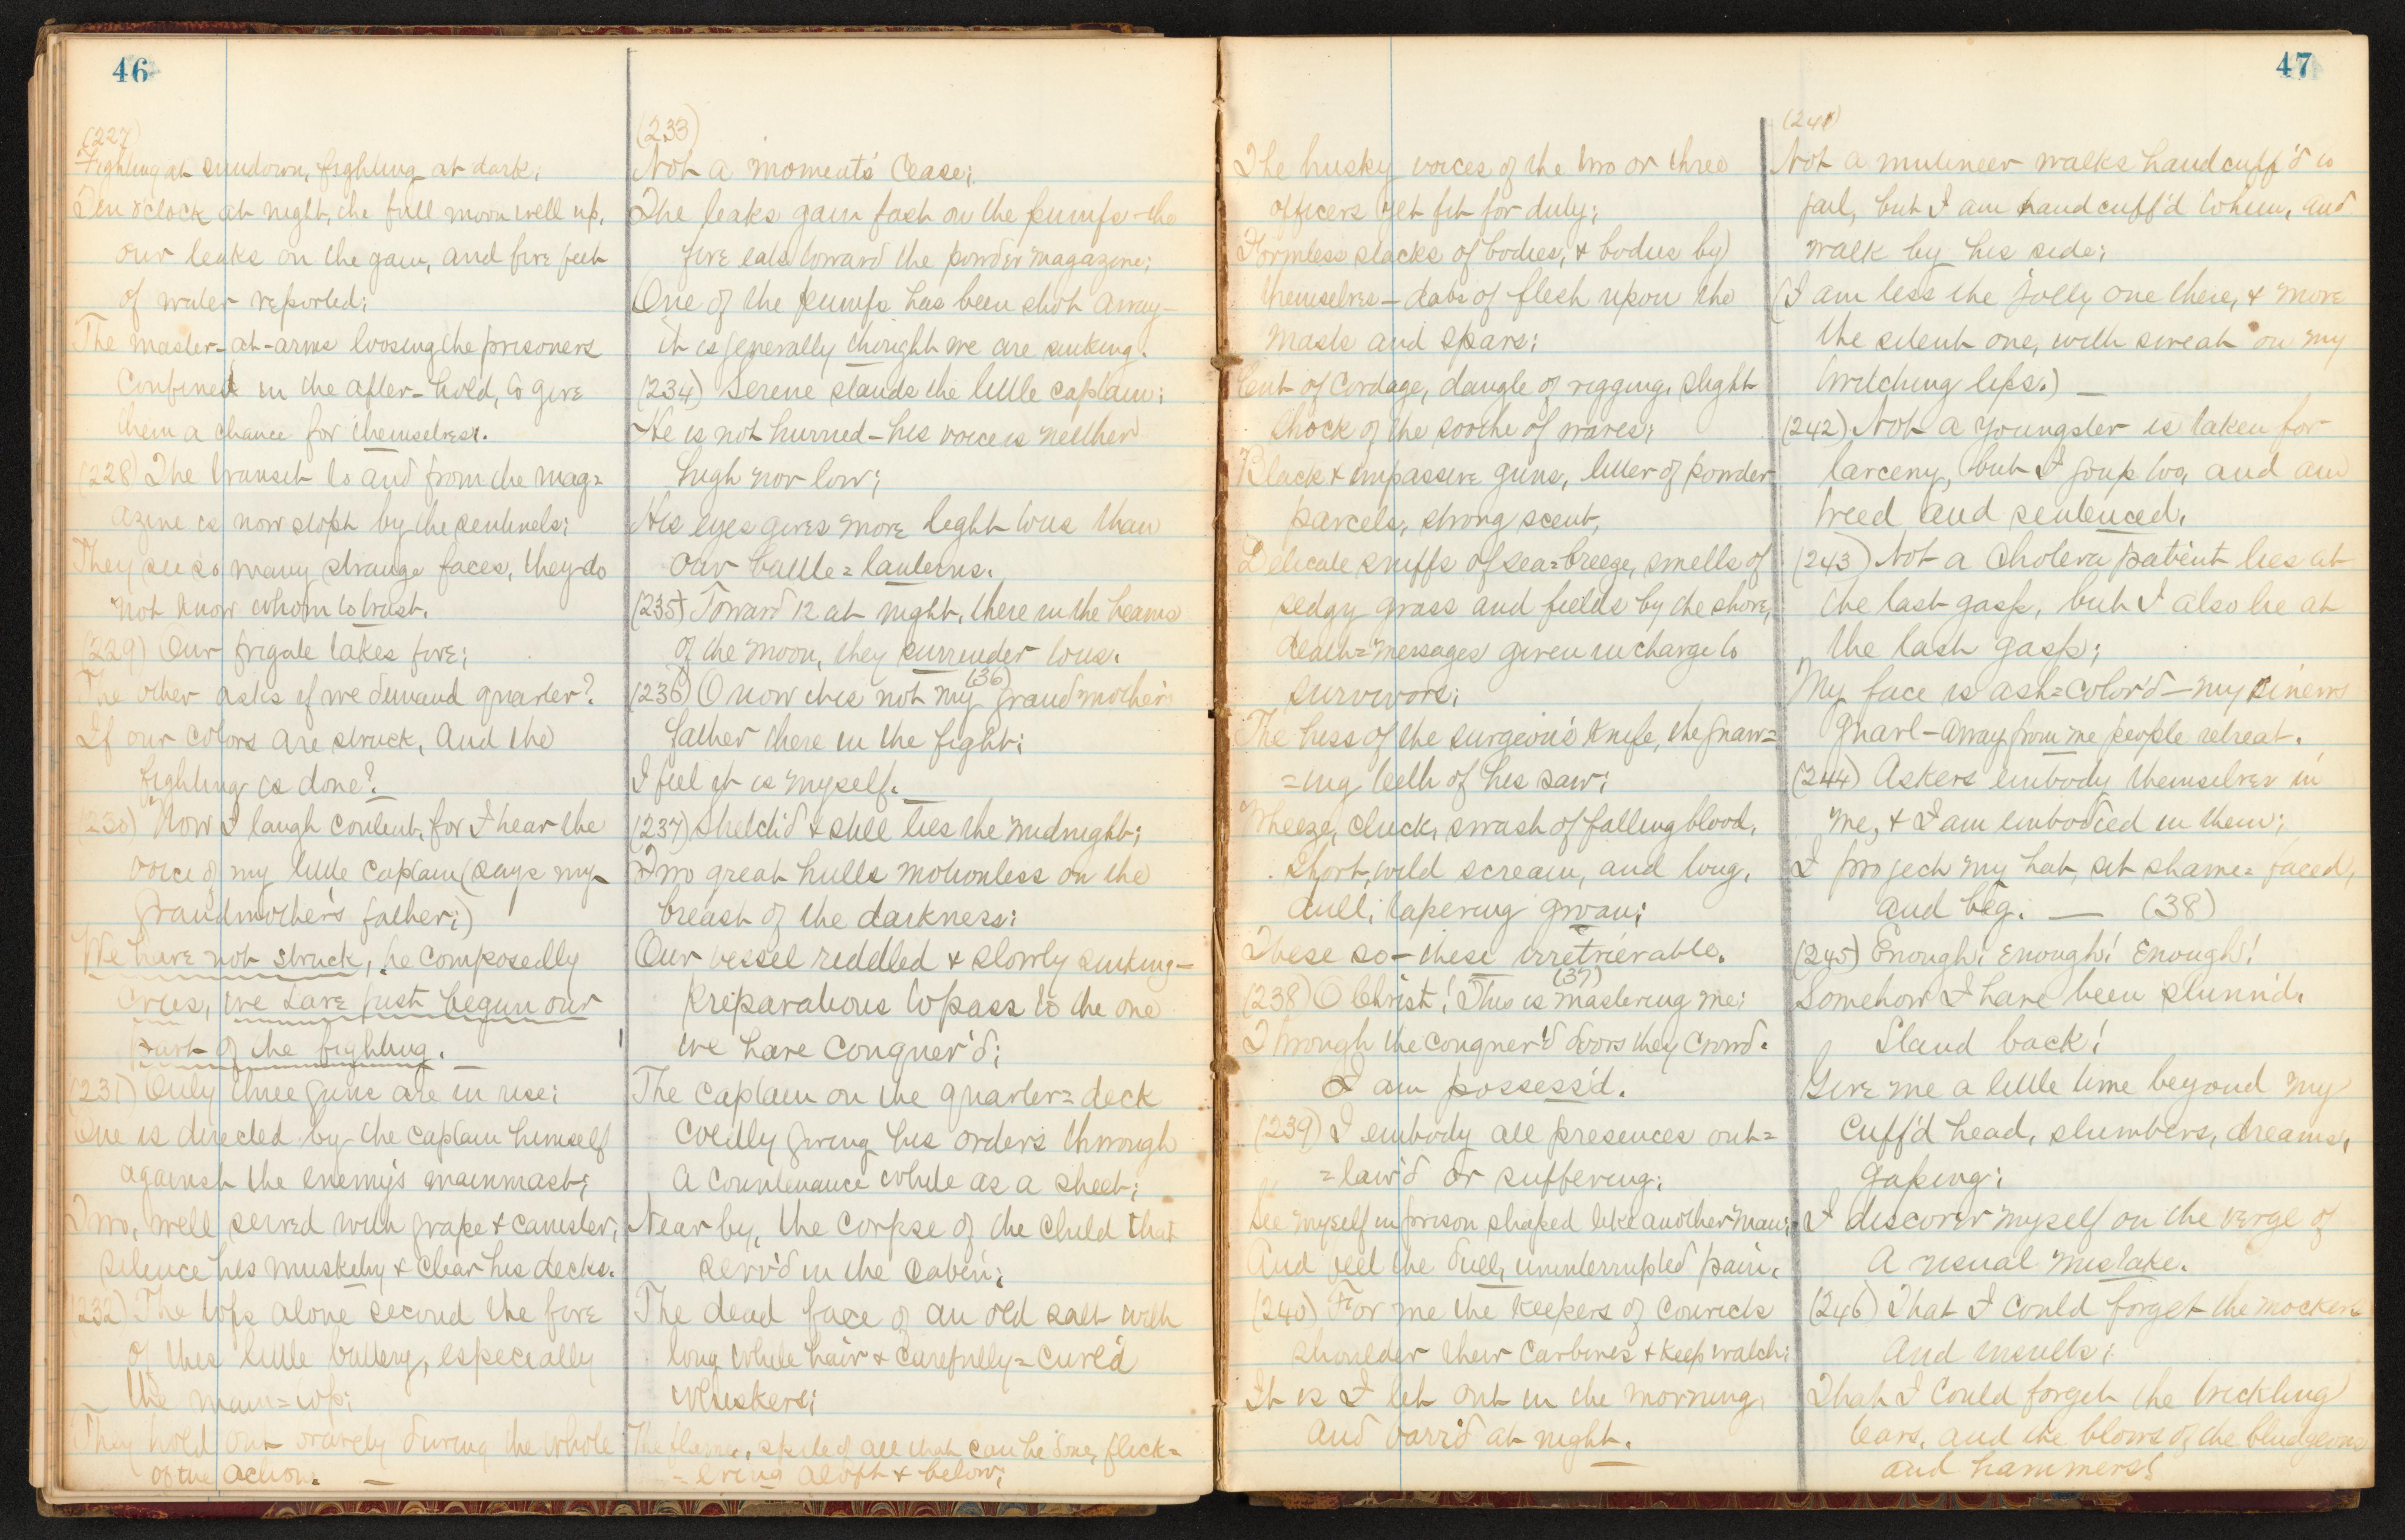 46
(227)
Fighting at sundown, fighting at dark;
Ten o'clock at night, the full moon well up,
our leaks on the gain, and five feet
of water reported;
The master-at-arms loosing the prisoners
confined in the after-hold, to give
them a chance for themselves.
(228) The transit to and from the mag=
azine is now stopt by the sentinels;
They see so many strange faces, they do
not know whom to trust.
(229) Our frigate takes fire;
The other asks if we demand quarter?
If our colors are struck, and the
fighting is done?
(230) Now I laugh content, for I hear the
voice of my little captain (says my
Grandmother's father;)
We have not struck, he composedly
cries, we have just begun our
part of the fighting.
(231) Only three guns are in use;
One is directed by the captain himself
against the enemy's mainmast;
Two, well served with grape & canister,
silence his musketry & clear his decks.
(232) The tops alone second the fire
of this little battery, especially
the main=top;
They hold out bravely during the whole
of the action.
(233)
Not a moment's cease;
The leaks gain fast on the pumps - the
fire eats toward the powder magazine;
One of the pumps has been shot away -
it is generally thought we are sinking.
(234) Serene stands the little captain;
He is not hurried - his voice is neither
high nor low;
His eyes gives more light to us than
our battle=lanterns.
(235) Toward 12 at night, there in the beams
of the moon, they surrender to us.
(36)
(236) O now it is not my grandmother's
father there in the fight;
I feel it is myself.
(237) Stretch'd & still lies the midnight;
Two great hulls motionless on the
breast of the darkness;
Our vessel riddled & slowly sinking -
preparations to pass to the one
we have conquer'd;
The captain on the quarter=deck
coldly giving his orders through
a countenance white as a sheet;
Near by, the corpse of the child that
serv'd in the cabin;
The dead face of an old salt with
long white hair & carefully=curl'd
whiskers;
The flames, spite of all that can be done, flick=
=ering aloft & below;
47
The husky voices of the two or three
officers yet fit for duty;
Formless stacks of bodies, & bodies by
themselves - dabs of flesh upon the
masts and spars;
Cut of cordage, dangle of rigging, slight
shock of the soothe of waves;
Black & impassive guns, litter of powder
parcels, strong scent,
Delicate sniffs of sea=breeze, smells of
sedgy grass and fields by the shore,
death=messages given in charge to
survivors;
The hiss of the surgeon's knife, the gnaw=
=ing teeth of his saw;
Wheeze, cluck, swash of falling blood,
short, wild scream, and long,
dull, tapering groan;
These so - these irretrievable.
(37)
(238) O Christ! This is mastering me;
Through the conquer'd doors they crowd.
I am possess'd.
(239) I embody all presences out=
=law'd or suffering;
See myself in prison shaped like another man;
And feel the dull, uninterrupted pain.
(240) For me the keepers of convicts
shoulder their carbines & keep watch;
It is I let out in the morning,
and barr'd at night.
(241)
Not a mutineer walks handcuff'd to
jail, but I am handcuff'd to him, and
walk by his side;
(I am less the jolly one there, & more
the silent one, with sweat on my
twitching lips.)
(242) Not a youngster is taken for
larceny, but I go up too, and am
tried and sentenced.
(243) Not a cholera patient lies at
the last gasp, but I also lie at
the last gasp;
My face is ash=color'd - my sinews
gnarl - away from me people retreat.
(244) Askers embody themselves in
me, & I am embodied in them;
I project my hat, sit shame=faced,
and beg. — (38)
(245) Enough! Enough! Enough!
Somehow I have been stunn'd.
Stand back!
Give me a little time beyond my
cuff'd head, slumbers, dreams,
gaping;
I discover myself on the verge of
a usual mistake.
(246) That I could forget the mockers
and insults;
That I could forget the trickling
tears, and the blows of the bludgeons
and hammers!